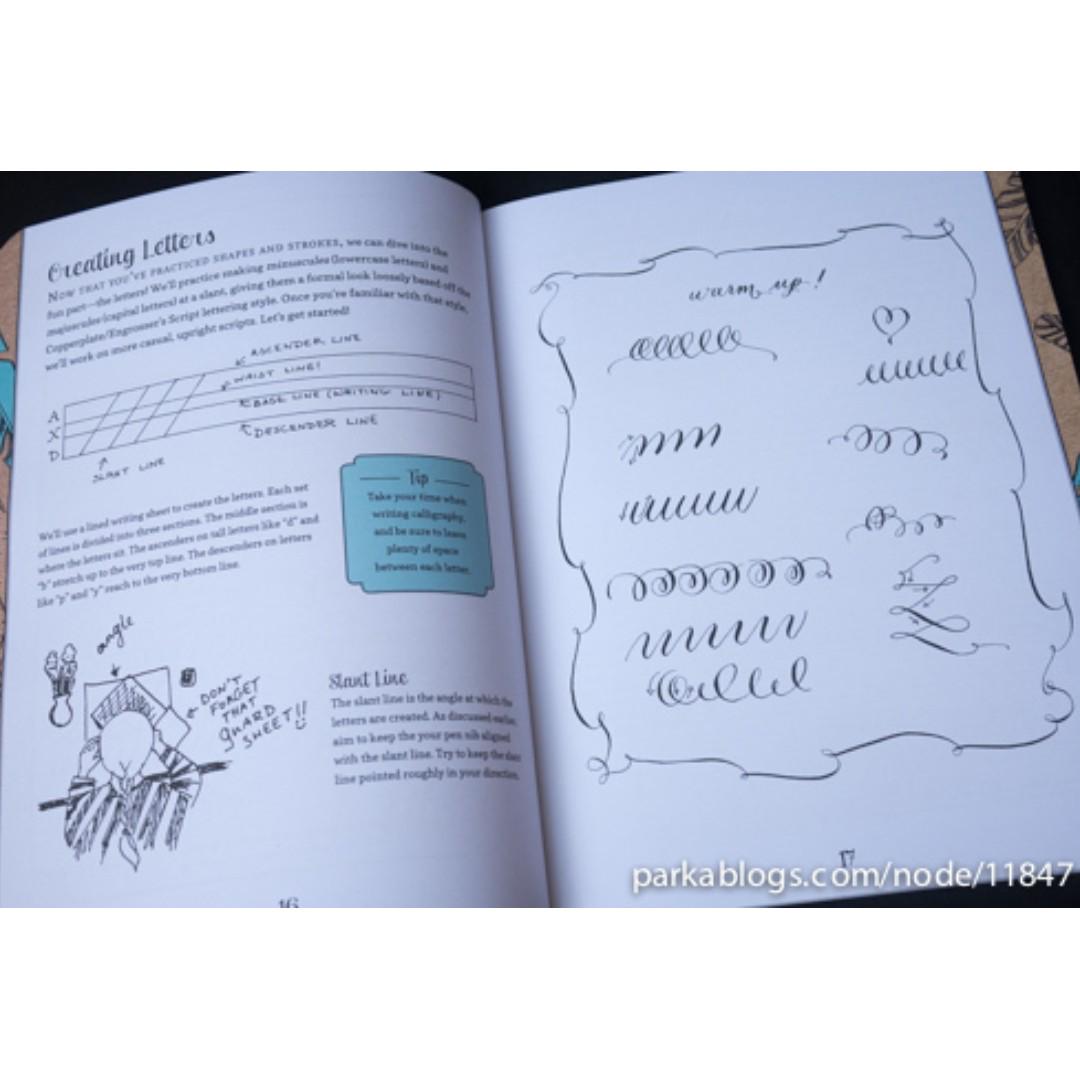 Creating Letters
NOW THAT YOU'VE PRACTICED SHAPES AND STROKES, we can dive into the
fun part—the letters! We'll practice making minuscules (lowercase letters) and
majuscules (capital letters) at a slant, giving them a formal look loosely based off the
Copperplate/Engrosser's Script lettering style. Once you're familiar with that style,
we'll work on more casual, upright scripts. Let's get started!
ASCENDER LINE
WAIST LINE!
BASE LINE (WRITING LINE)
DESCENDER LINE
A
X
D
SLANT LINE
We'll use a lined writing sheet to create the letters. Each set
of lines is divided into three sections. The middle section is
where the letters sit. The ascenders on tall letters like "d" and
"b" stretch up to the very top line. The descenders on letters
like "p" and "y" reach to the very bottom line.
Tip
Take your time when
writing calligraphy,
and be sure to leave
plenty of space
between each letter.
angle
DON'T
FORGET
THAT
guARD
SHEET!!
Slant Line
The slant line is the angle at which the
letters are created. As discussed earlier,
aim to keep the your pen nib aligned
with the slant line. Try to keep the slant
line pointed roughly in your direction.
16
warm up!
17
parkablogs.com/node/11847